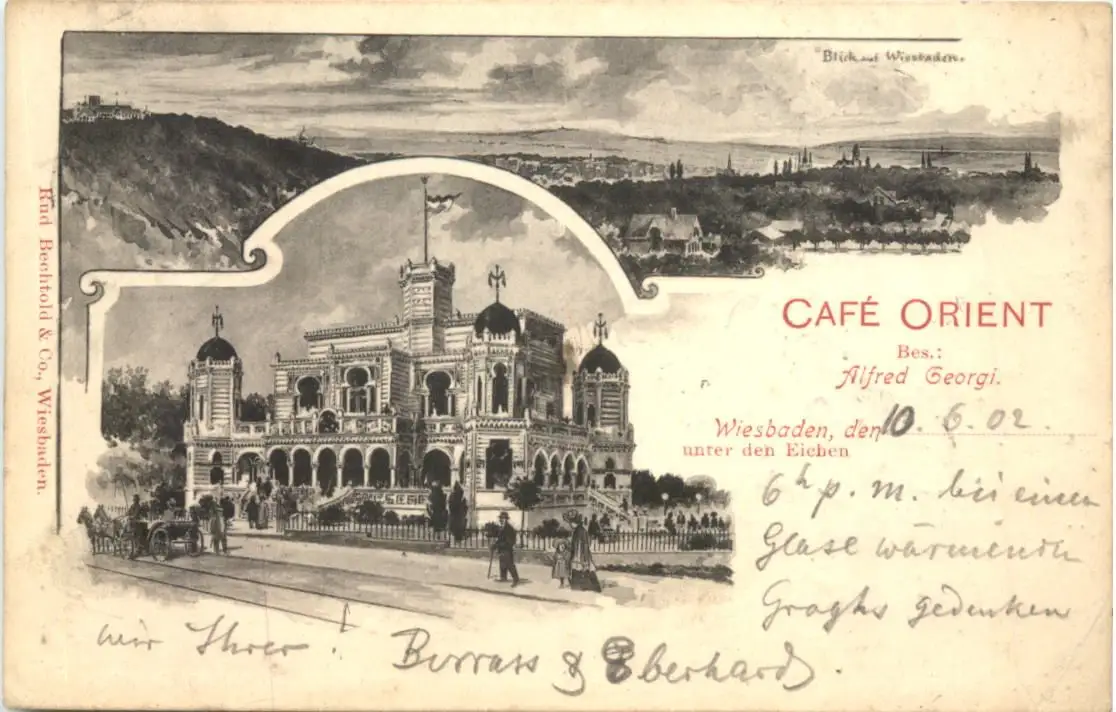 Blick auf Wiesbaden.
CAFÉ ORIENT
Bes.:
Alfred Georgi.
Wiesbaden, den 10. 6. 02.
unter den Eichen
6h p. m. bei einem
Glase wärmenden
Groghs gedenken
wir Ihrer! Borrass & Eberhard.
Rud Bechtold & Co., Wiesbaden.